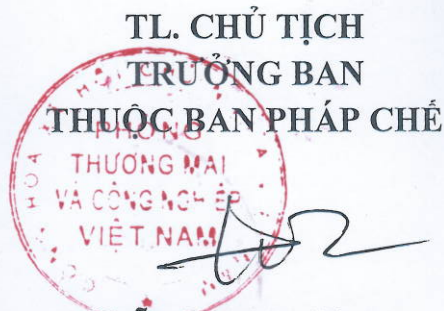 TL. CHỦ TỊCH
TRƯỞNG BAN
THUỘC BAN PHÁP CHẾ
PHÒNG
THƯƠNG MẠI
VÀ CÔNG NGHIỆP
VIỆT NAM